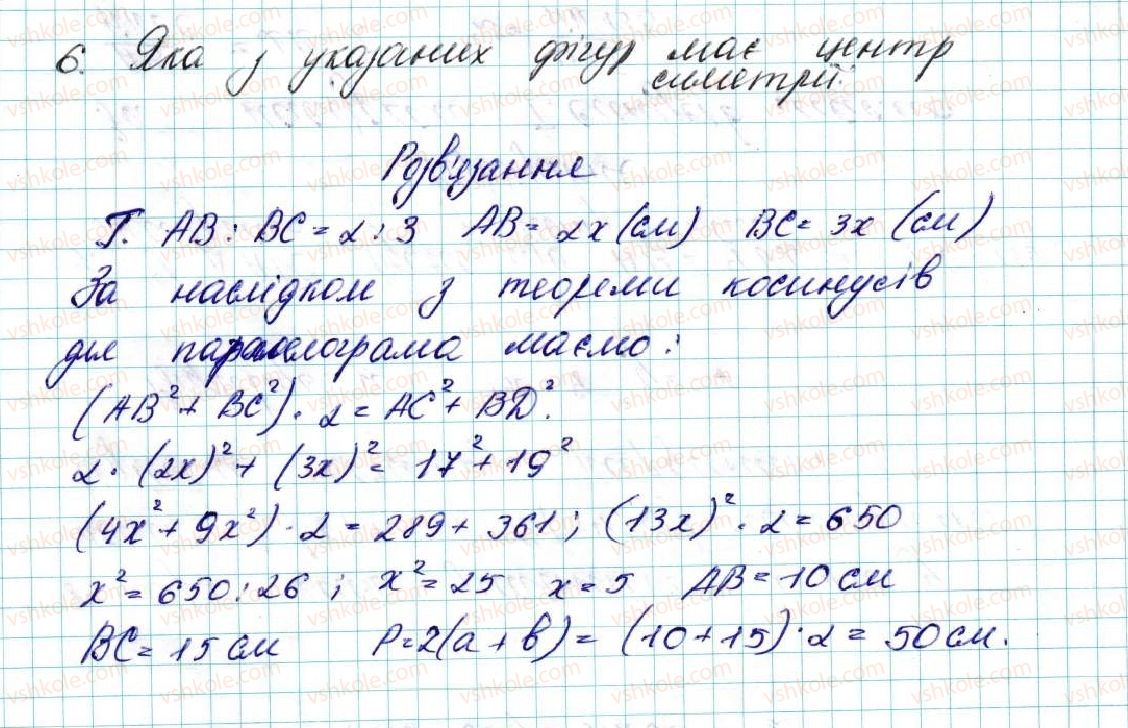 6. Яка з указаних фігур має центр
симетрії.
Розв'язання
Г. AB : BC = 2 : 3 AB = 2x (см) BC = 3x (см)
За наслідком з теореми косинусів
для паралелограма маємо:
(AB² + BC²) · 2 = AC² + BD².
2 · (2x)² + (3x)² = 17² + 19²
(4x² + 9x²) · 2 = 289 + 361; (13x)² · 2 = 650
x² = 650 : 26 ; x² = 25 x = 5 AB = 10 см
BC = 15 см P = 2(a + b) = (10 + 15) · 2 = 50 см.
vshkole.com